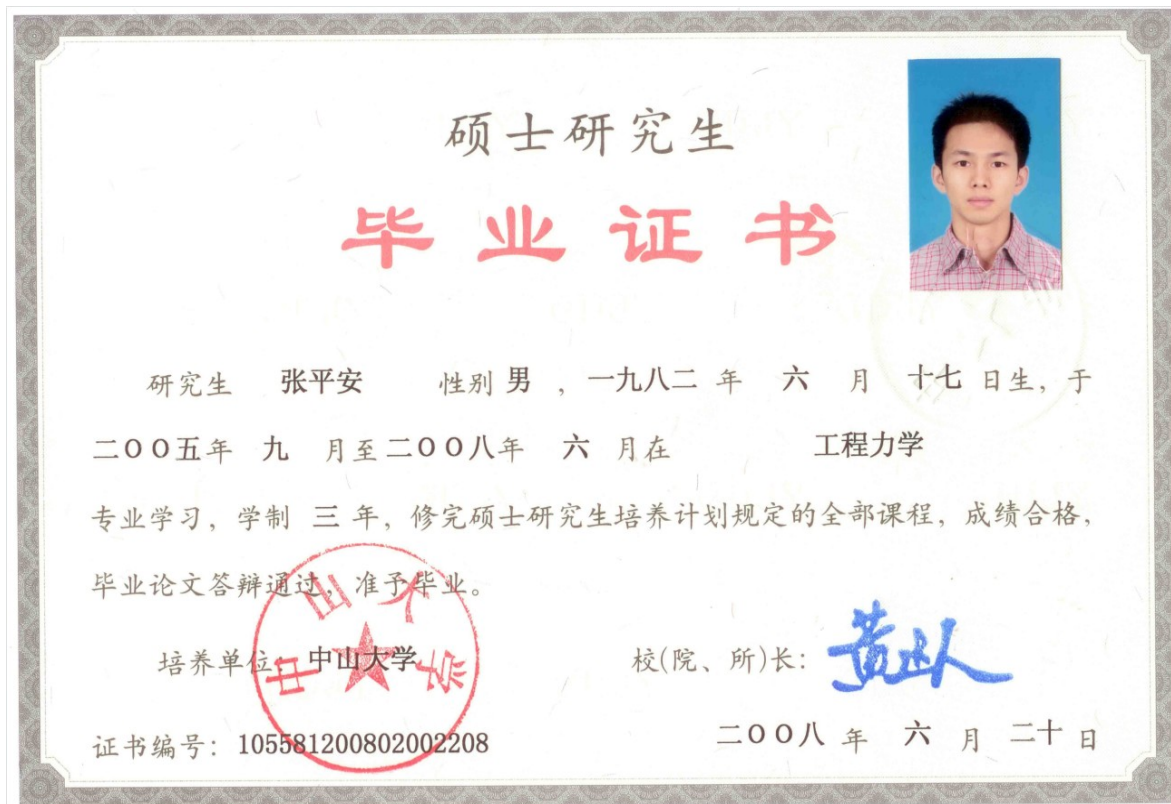 硕士研究生
毕业证书
研究生 张平安 性别 男 ，一九八二 年 六 月 十七 日生，于
二〇〇五年 九 月至 二〇〇八年 六 月在 工程力学
专业学习，学制 三 年，修完硕士研究生培养计划规定的全部课程，成绩合格，
毕业论文答辩通过，准予毕业。
培养单位：中山大学
中山大学
校(院、所)长：黄达人
证书编号：105581200802002208
二〇〇八 年 六 月 二十 日